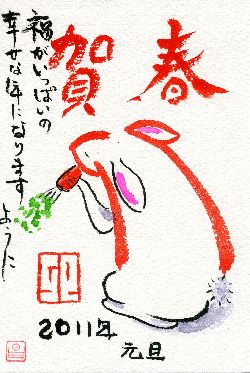 賀春
福がいっぱいの
幸せな年になります
ように
卯
2011年
元旦